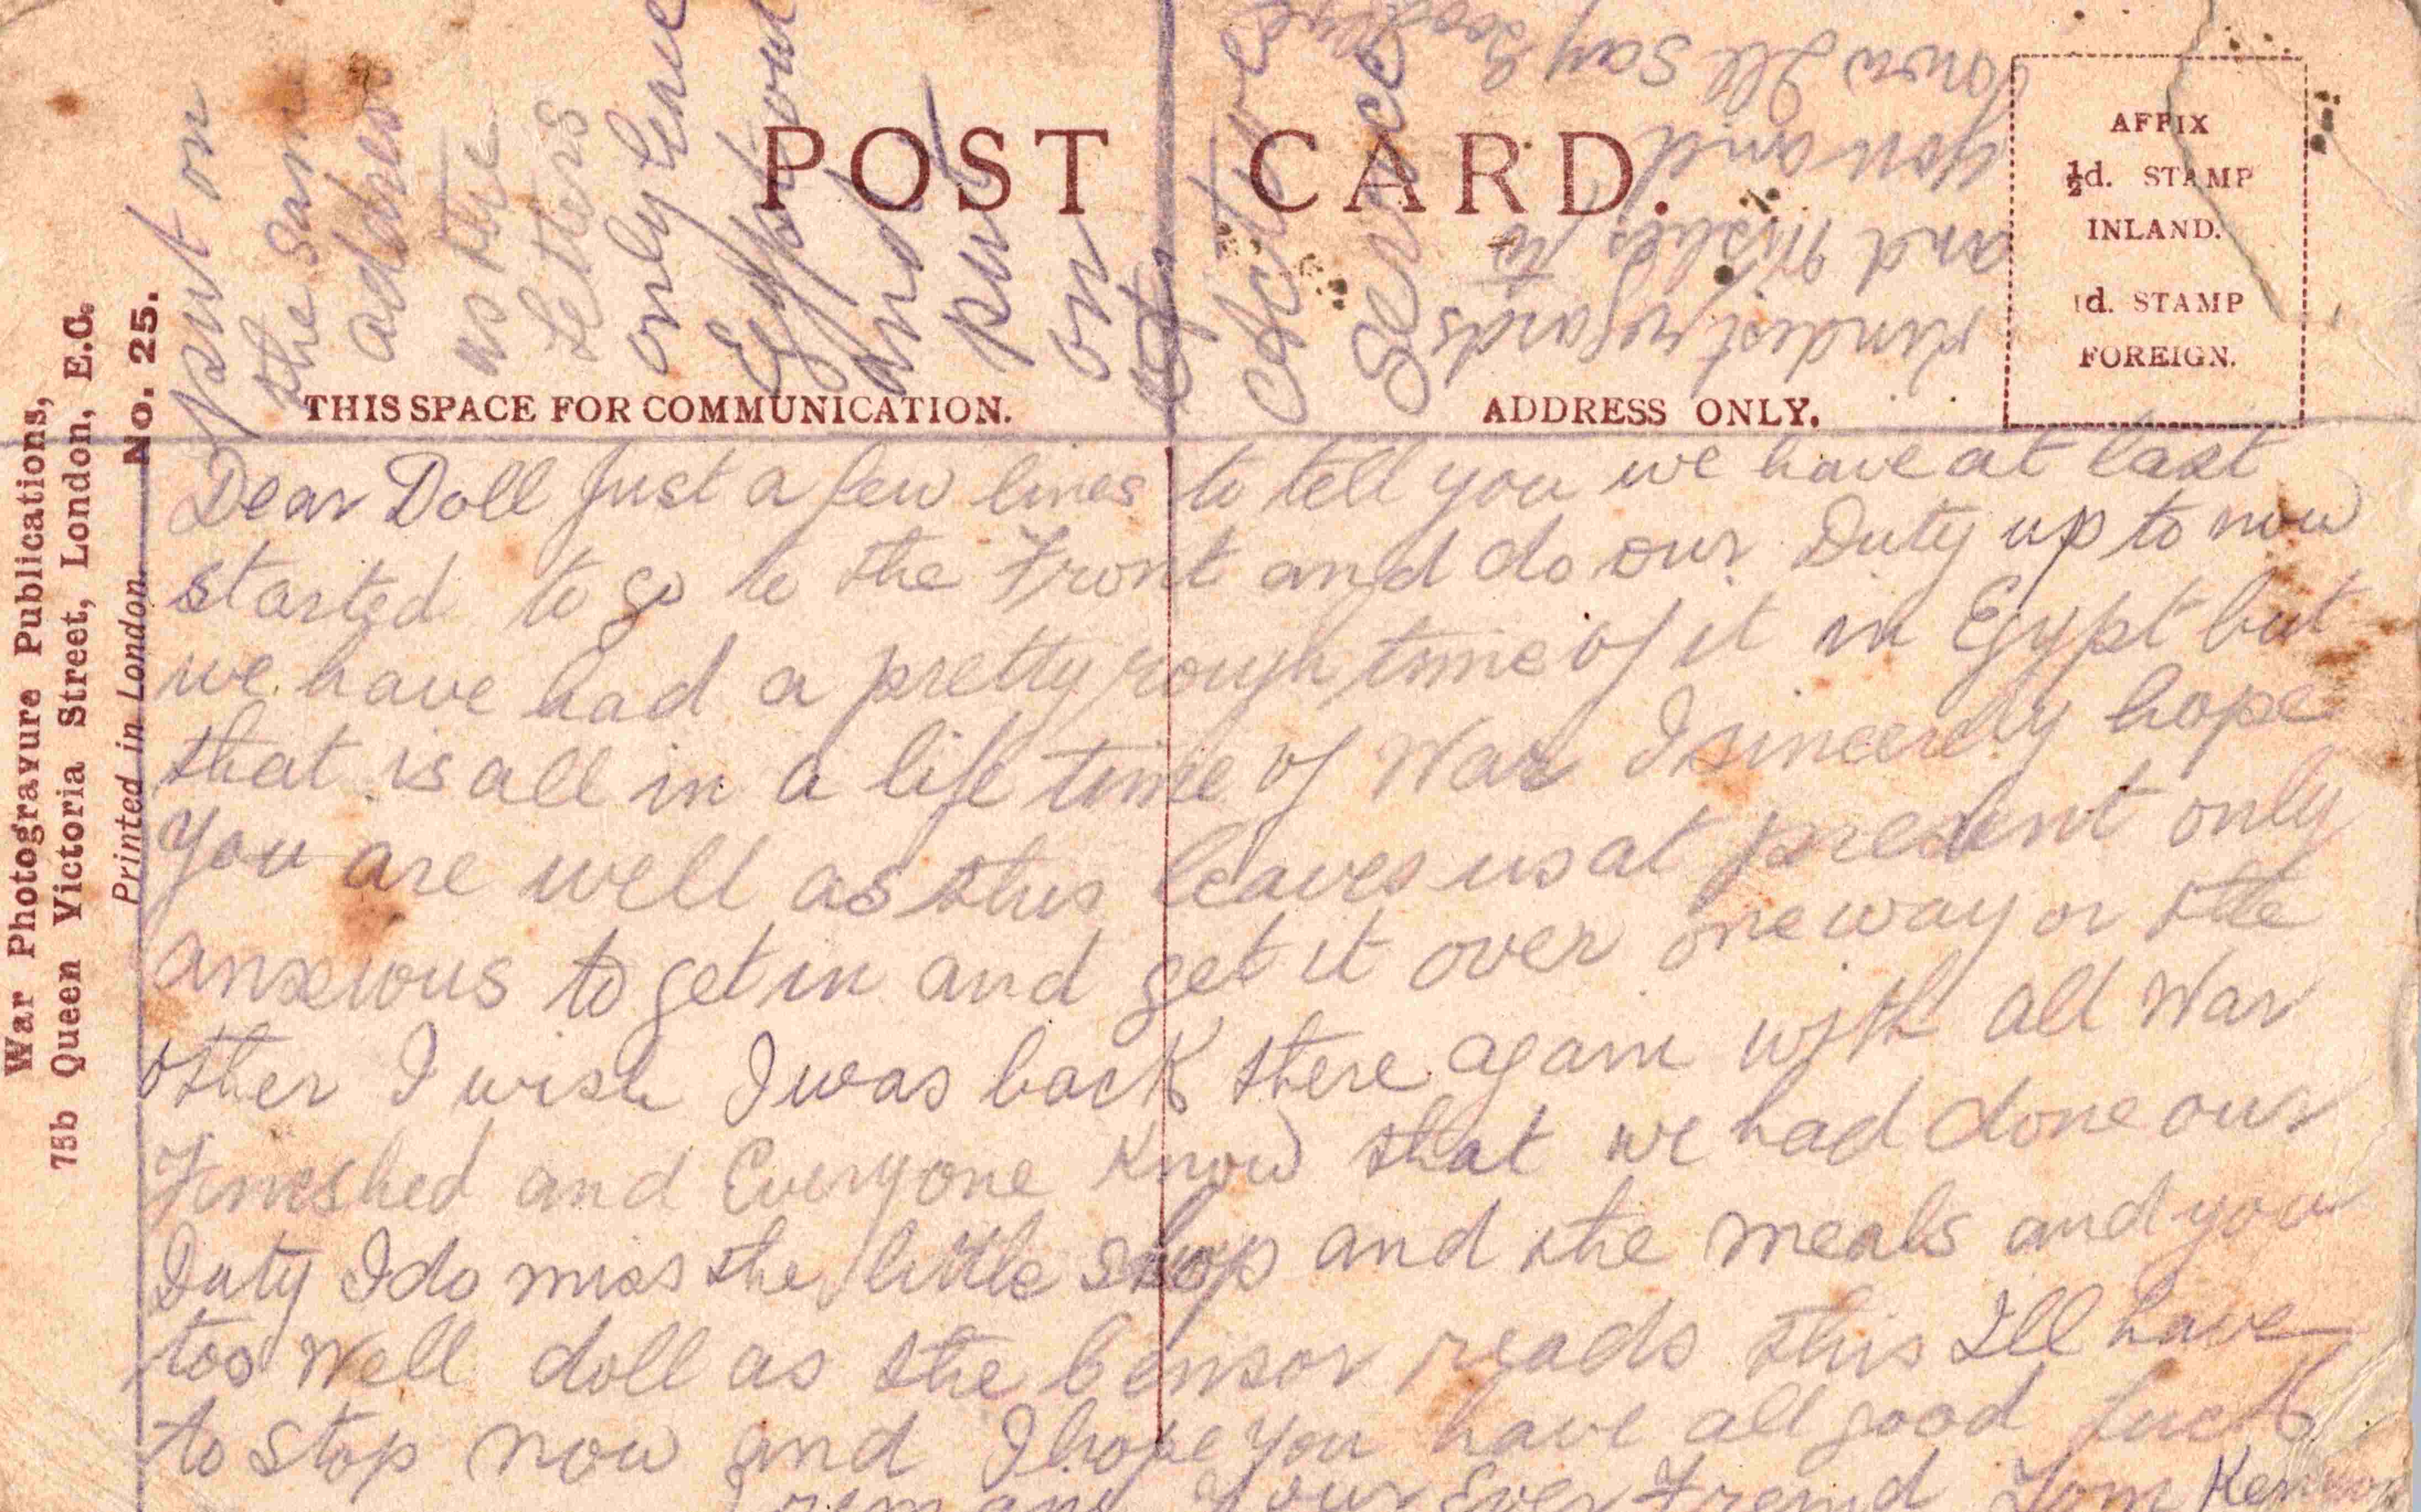 POST CARD.
THIS SPACE FOR COMMUNICATION.
ADDRESS ONLY.
AFFIX
½d. STAMP
INLAND.
1d. STAMP
FOREIGN.
War Photogravure Publications,
75b Queen Victoria Street, London, E.C.
Printed in London. No. 25.
Dear Doll Just a few lines to tell you we have at last
started to go to the Front and do our Duty up to now
we have had a pretty rough time of it in Egypt but
that is all in a life time of War I sincerely hope
you are well as this leaves us at present only
anxious to get in and get it over one way or the
other I wish I was back there again with all War
Fineshed and Everyone Know that we had done our
Duty I do miss the little shop and the meals and you
too Well doll as the Censor reads this Ill have
to stop now and I hope you have all good luck
I remain Your Ever Friend Tom Kenyon
put on
the same
address
as the
letters
only leave
Egypt out
and
put
on
it
Active
Service
kindest regards
and Wishes to
you and
now Ill say Goodbye